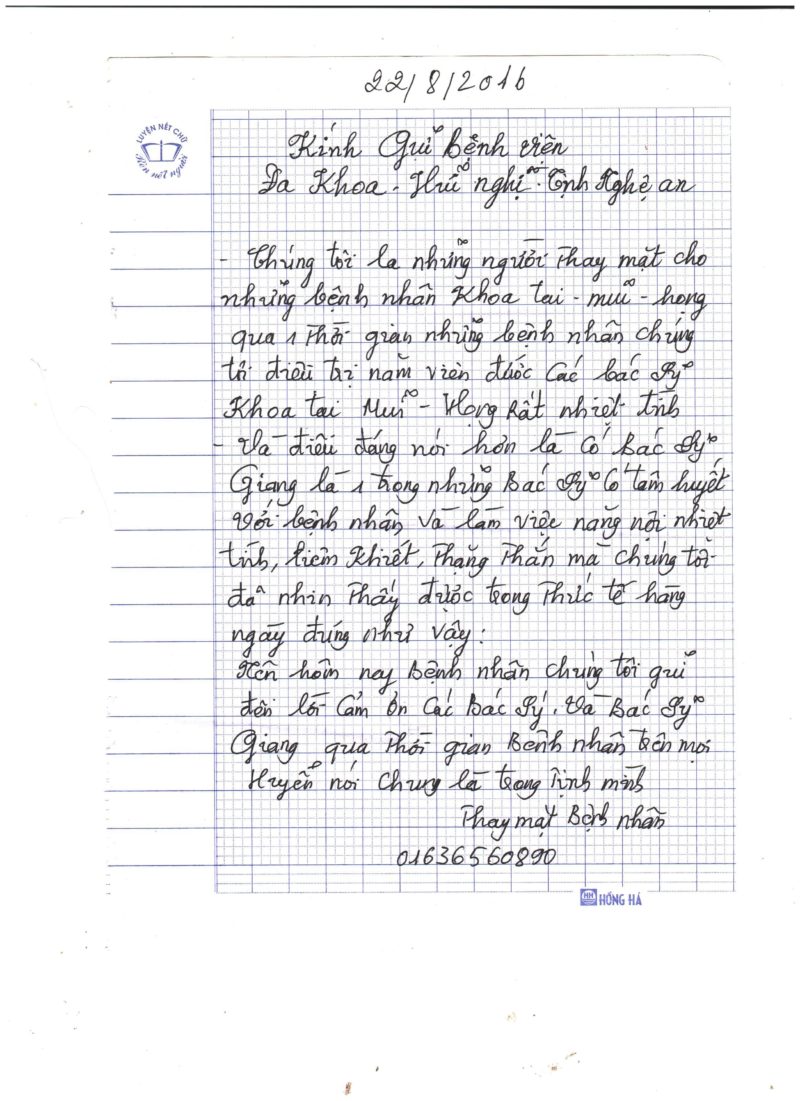 22/8/2016
LUYỆN NÉT CHỮ
Rèn nết người
Kính Gửi bệnh viện
Đa Khoa - Hữu nghị - Tỉnh Nghệ an
- Chúng tôi la những người Thay mặt cho
những bệnh nhân Khoa tai - mũi - họng
qua 1 Thời gian những bệnh nhân chúng
tôi điều trị nằm viên đước Các bác Sỹ
Khoa tai Mũi - Họng Rất nhiệt tình
- Và điều đáng nói hơn là Có Bác Sỹ
Giang là 1 trong những Bác Sỹ Có tâm huyết
Với bệnh nhân Và làm việc năng nội nhiệt
tình, liêm Khiết, Thạng Thắn mà chúng tôi
đã nhìn Thấy được trong Thức tế hàng
ngày đúng như Vậy :
Nên hôm nay Bệnh nhân chúng tôi gửi
đên lời Cảm Ơn Các Bác Sý. Và Bác Sỹ
Giang qua Thời gian Bênh nhân trên mọi
Huyễn nói Chung là trong Tịnh mình
Thay mặt Bệnh nhân
01636560890
HH HỒNG HÀ